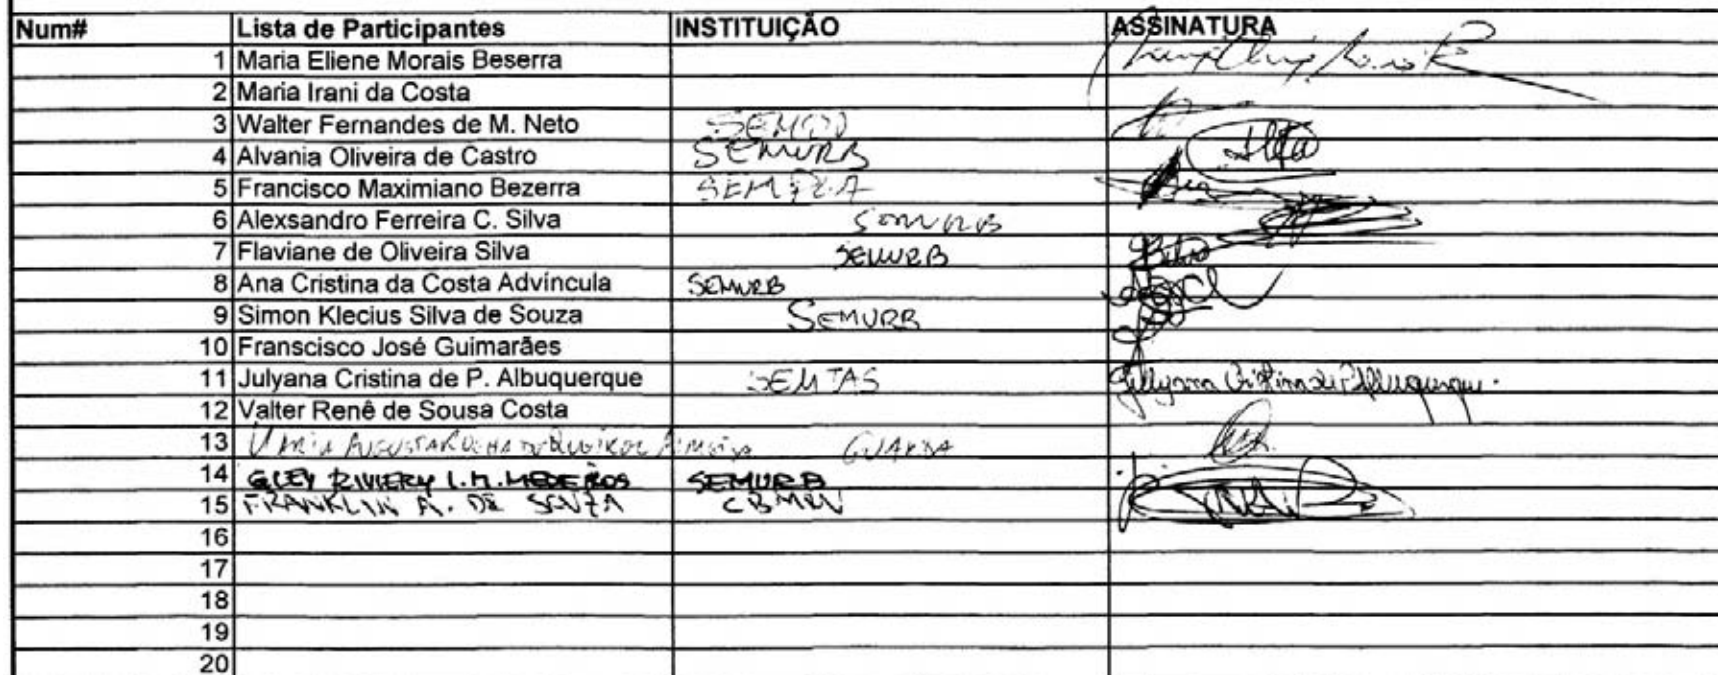 Num# Lista de Participantes INSTITUIÇÃO ASSINATURA
1 Maria Eliene Morais Beserra
2 Maria Irani da Costa
3 Walter Fernandes de M. Neto
4 Alvania Oliveira de Castro SEMURB
5 Francisco Maximiano Bezerra SEMPLA
6 Alexsandro Ferreira C. Silva SEMURB
7 Flaviane de Oliveira Silva SEMURB
8 Ana Cristina da Costa Advíncula SEMURB
9 Simon Klecius Silva de Souza SEMURB
10 Franscisco José Guimarães
11 Julyana Cristina de P. Albuquerque SEMTAS Jullyana Cristina de P. Albuquerque.
12 Valter Renê de Sousa Costa
13 MARIA AUGUSTA
14 GLEY RIVIERY I. M. MEDEIROS SEMURB
15 FRANKLIN A. DE SOUZA
16
17
18
19
20